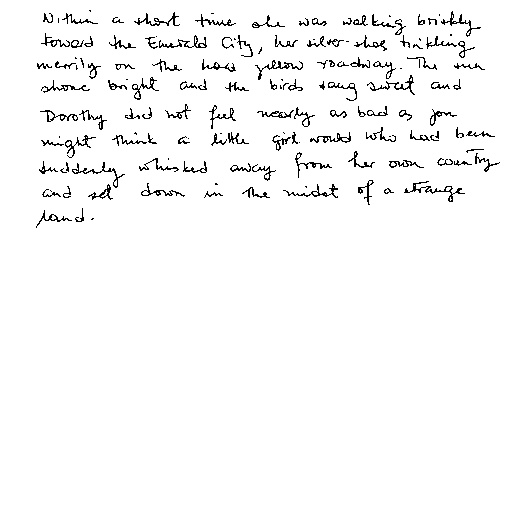 Within a short time she was walking briskly
toward the Emerald City, her silver shoes tinkling
merrily on the hard yellow roadway. The sun
shone bright and the birds sang sweet and
Dorothy did not feel nearly as bad as you
might think a little girl would who had been
suddenly whisked away from her own country
and set down in the midst of a strange
land.